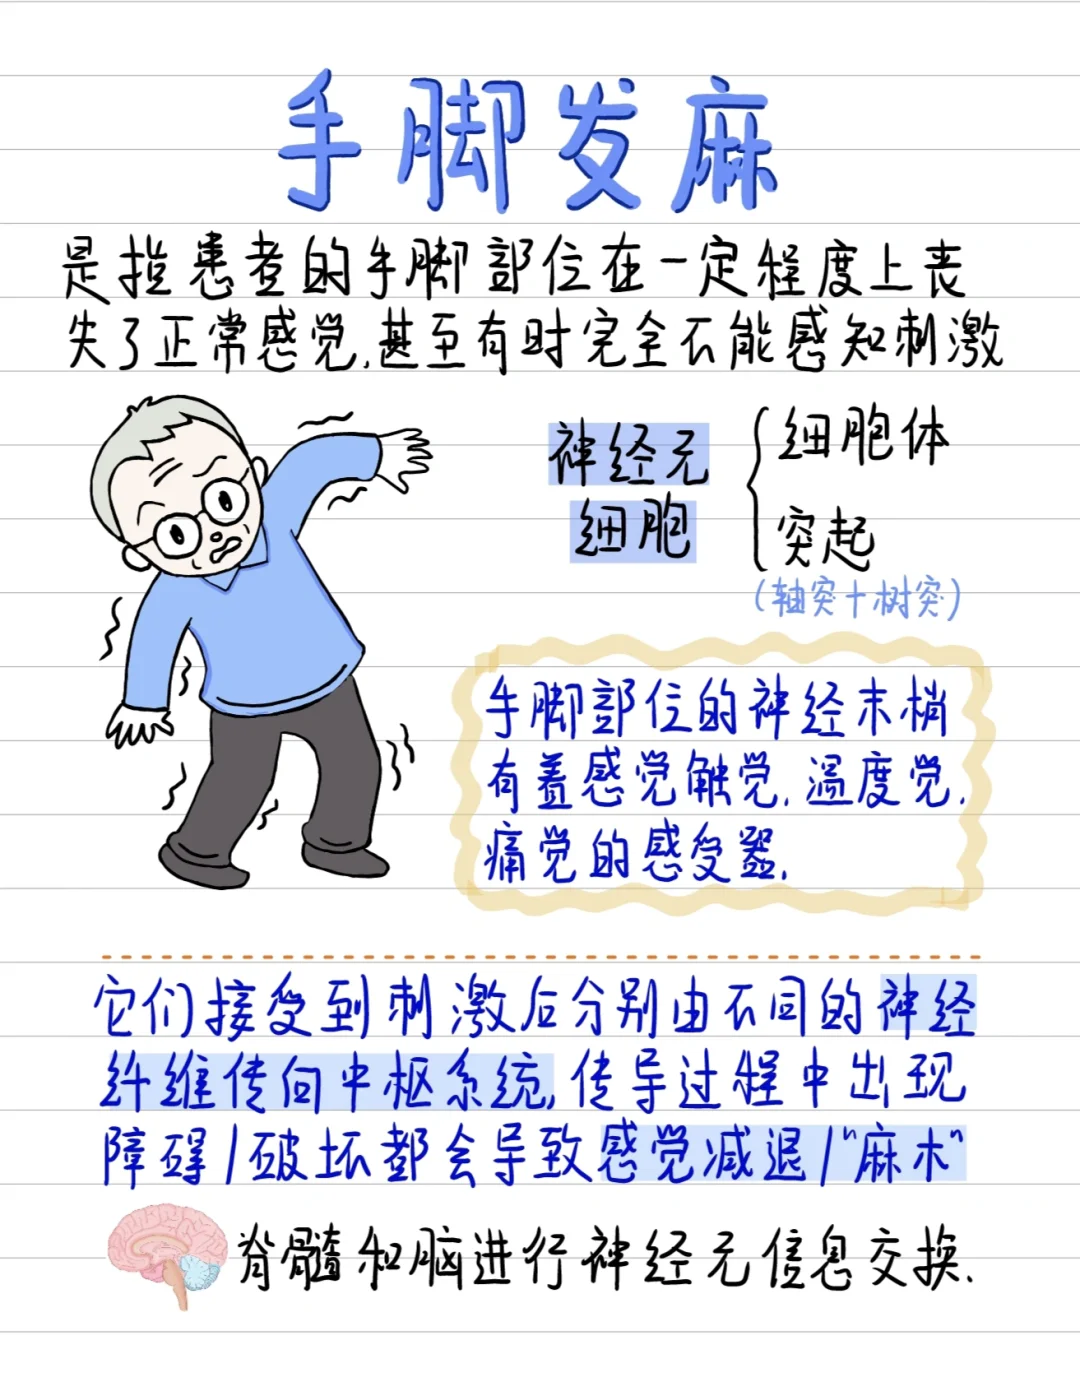 手脚发麻
是指患者的手脚部位在一定程度上丧
失了正常感觉,甚至有时完全不能感知刺激
神经元
细胞
细胞体
突起
(轴突+树突)
手脚部位的神经末梢
有着感觉触觉,温度觉,
痛觉的感受器,
它们接受到刺激后分别由不同的神经
纤维传向中枢系统,传导过程中出现
障碍/破坏都会导致感觉减退/"麻木"
脊髓和脑进行神经元信息交换.